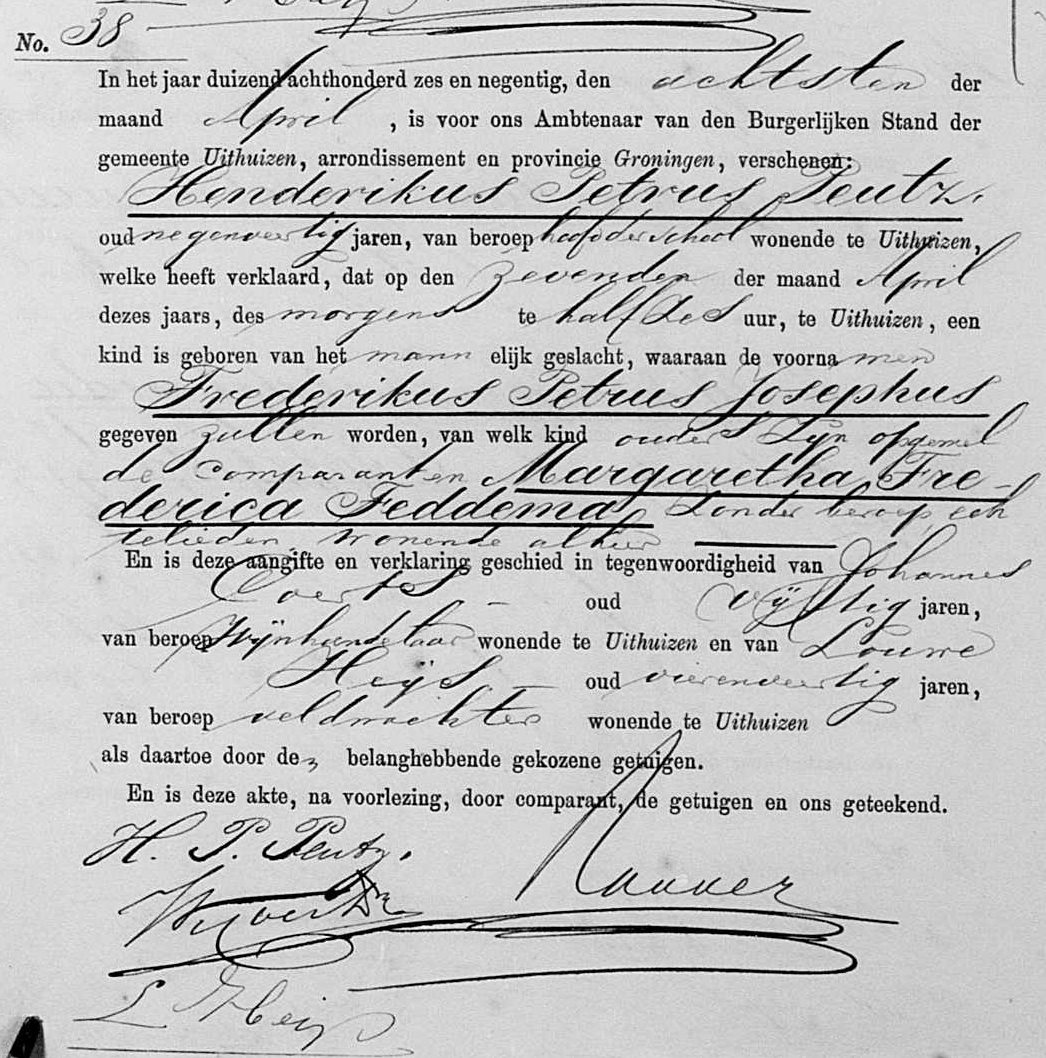 No. 38
In het jaar duizend achthonderd zes en negentig, den achtsten der
maand April, is voor ons Ambtenaar van den Burgerlijken Stand der
gemeente Uithuizen, arrondissement en provincie Groningen, verschenen:
Henderikus Petrus Peutz,
oud negenveertig jaren, van beroep hoofd der school wonende te Uithuizen,
welke heeft verklaard, dat op den zevenden der maand April
dezes jaars, des morgens te half zes uur, te Uithuizen, een
kind is geboren van het mannelijk geslacht, waaraan de voornamen
Frederikus Petrus Josephus
gegeven zullen worden, van welk kind ouders zyn opgemel
de comparant en Margaretha Fre-
derica Feddema, zonder beroep, ech
telieden wonende alhier
En is deze aangifte en verklaring geschied in tegenwoordigheid van Johannes
Coerts oud vijftig jaren,
van beroep Wijnhandelaar wonende te Uithuizen en van Louwe
Heijs oud vierenveertig jaren,
van beroep veldwachter wonende te Uithuizen
als daartoe door den belanghebbende gekozene getuigen.
En is deze akte, na voorlezing, door comparant, de getuigen en ons geteekend.
H. P. Peutz.
L Heijs